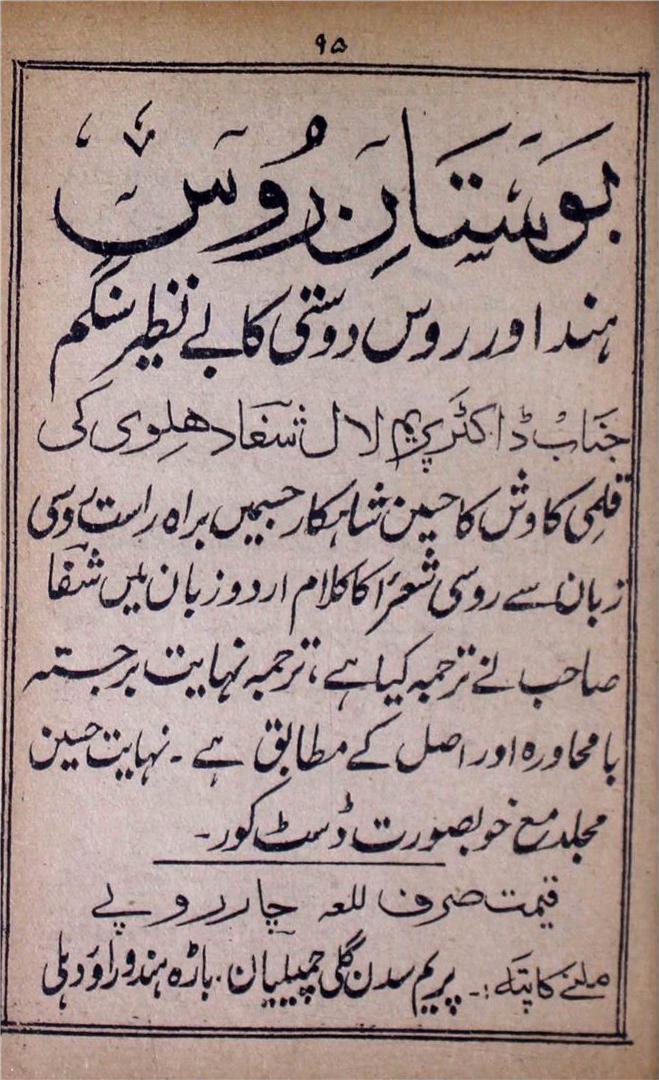 ۹۵
بوستانِ رُوس
ہند اور روس دوستی کا بے نظیر سنگم
جناب ڈاکٹر پریم لال شفا دھلوی کی
قلمی کاوش کا حسین شاہکار جسمیں براہ راست روسی
زبان سے روسی شعرا کا کلام اردو زبان میں شفا
صاحب نے ترجمہ کیا ہے، ترجمہ نہایت برجستہ
بامحاورہ اور اصل کے مطابق ہے۔ نہایت حسین
مجلد مع خوبصورت ڈسٹ کور۔
قیمت صرف للعہ چار روپے
ملنے کا پتہ :۔ پریم سدن گلی چمیلیان۔ باڑہ ہندو راؤ دہلی